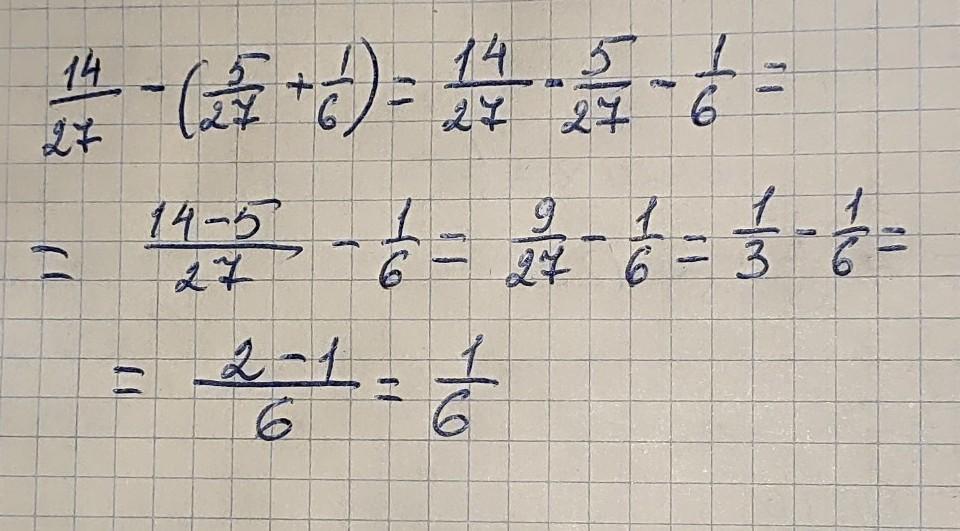 14/27 - (5/27 + 1/6) = 14/27 - 5/27 - 1/6 =
= 14-5/27 - 1/6 = 9/27 - 1/6 = 1/3 - 1/6 =
= 2-1/6 = 1/6